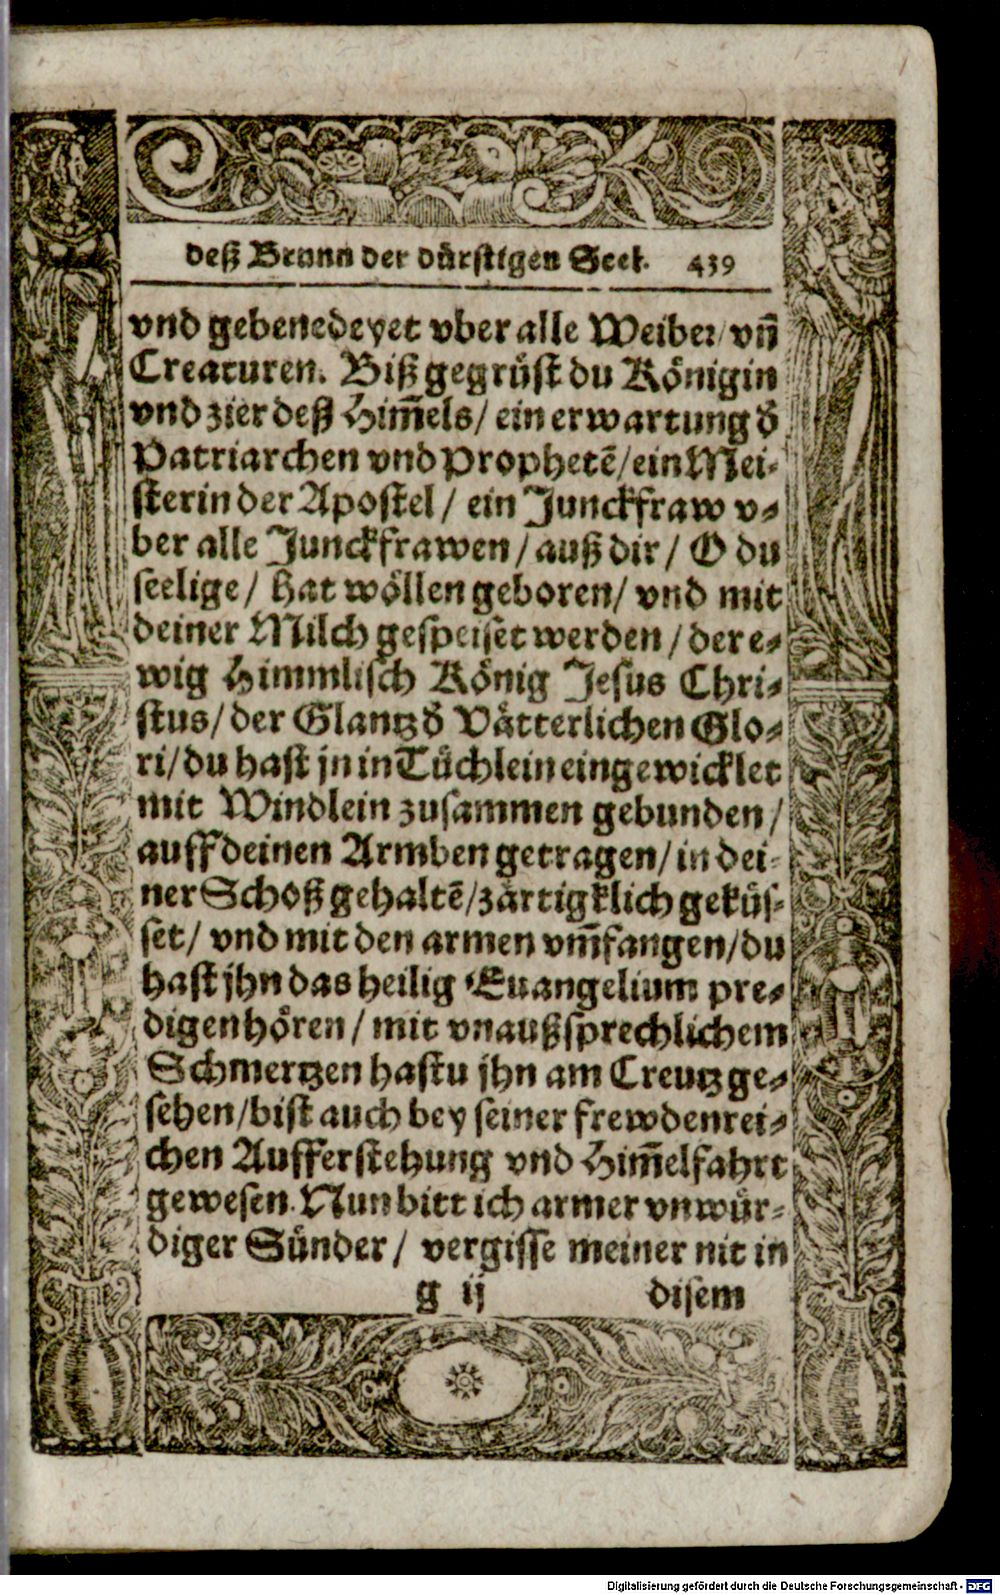 deß Brunn der dürstigen Seel. 439
vnd gebenedeyet vber alle Weiber/ vn̄
Creaturen. Biß gegrüst du Königin
vnd zier deß Him̄els/ ein erwartung d̕
Patriarchen vnd Prophetē/ ein Mei-
sterin der Apostel/ ein Junckfraw v-
ber alle Junckfrawen/ auß dir/ O du
seelige/ hat wöllen geboren/ vnd mit
deiner Milch gespeiset werden/ der e-
wig Himmlisch König Jesus Chri-
stus/ der Glantz d̕ Vätterlichen Glo-
ri/ du hast jn in Tüchlein eingewicklet
mit Windlein zusammen gebunden/
auff deinen Armben getragen/ in dei-
ner Schoß gehaltē/ zärtigklich geküs-
set/ vnd mit den armen vm̄fangen/ du
hast jhn das heilig Euangelium pre-
digen hören/ mit vnaußsprechlichem
Schmertzen hastu jhn am Creutz ge-
sehen/ bist auch bey seiner frewdenrei-
chen Aufferstehung vnd Him̄elfahrt
gewesen. Nun bitt ich armer vnwür-
diger Sünder/ vergisse meiner nit in
g ij disem
Digitalisierung gefördert durch die Deutsche Forschungsgemeinschaft - DFG